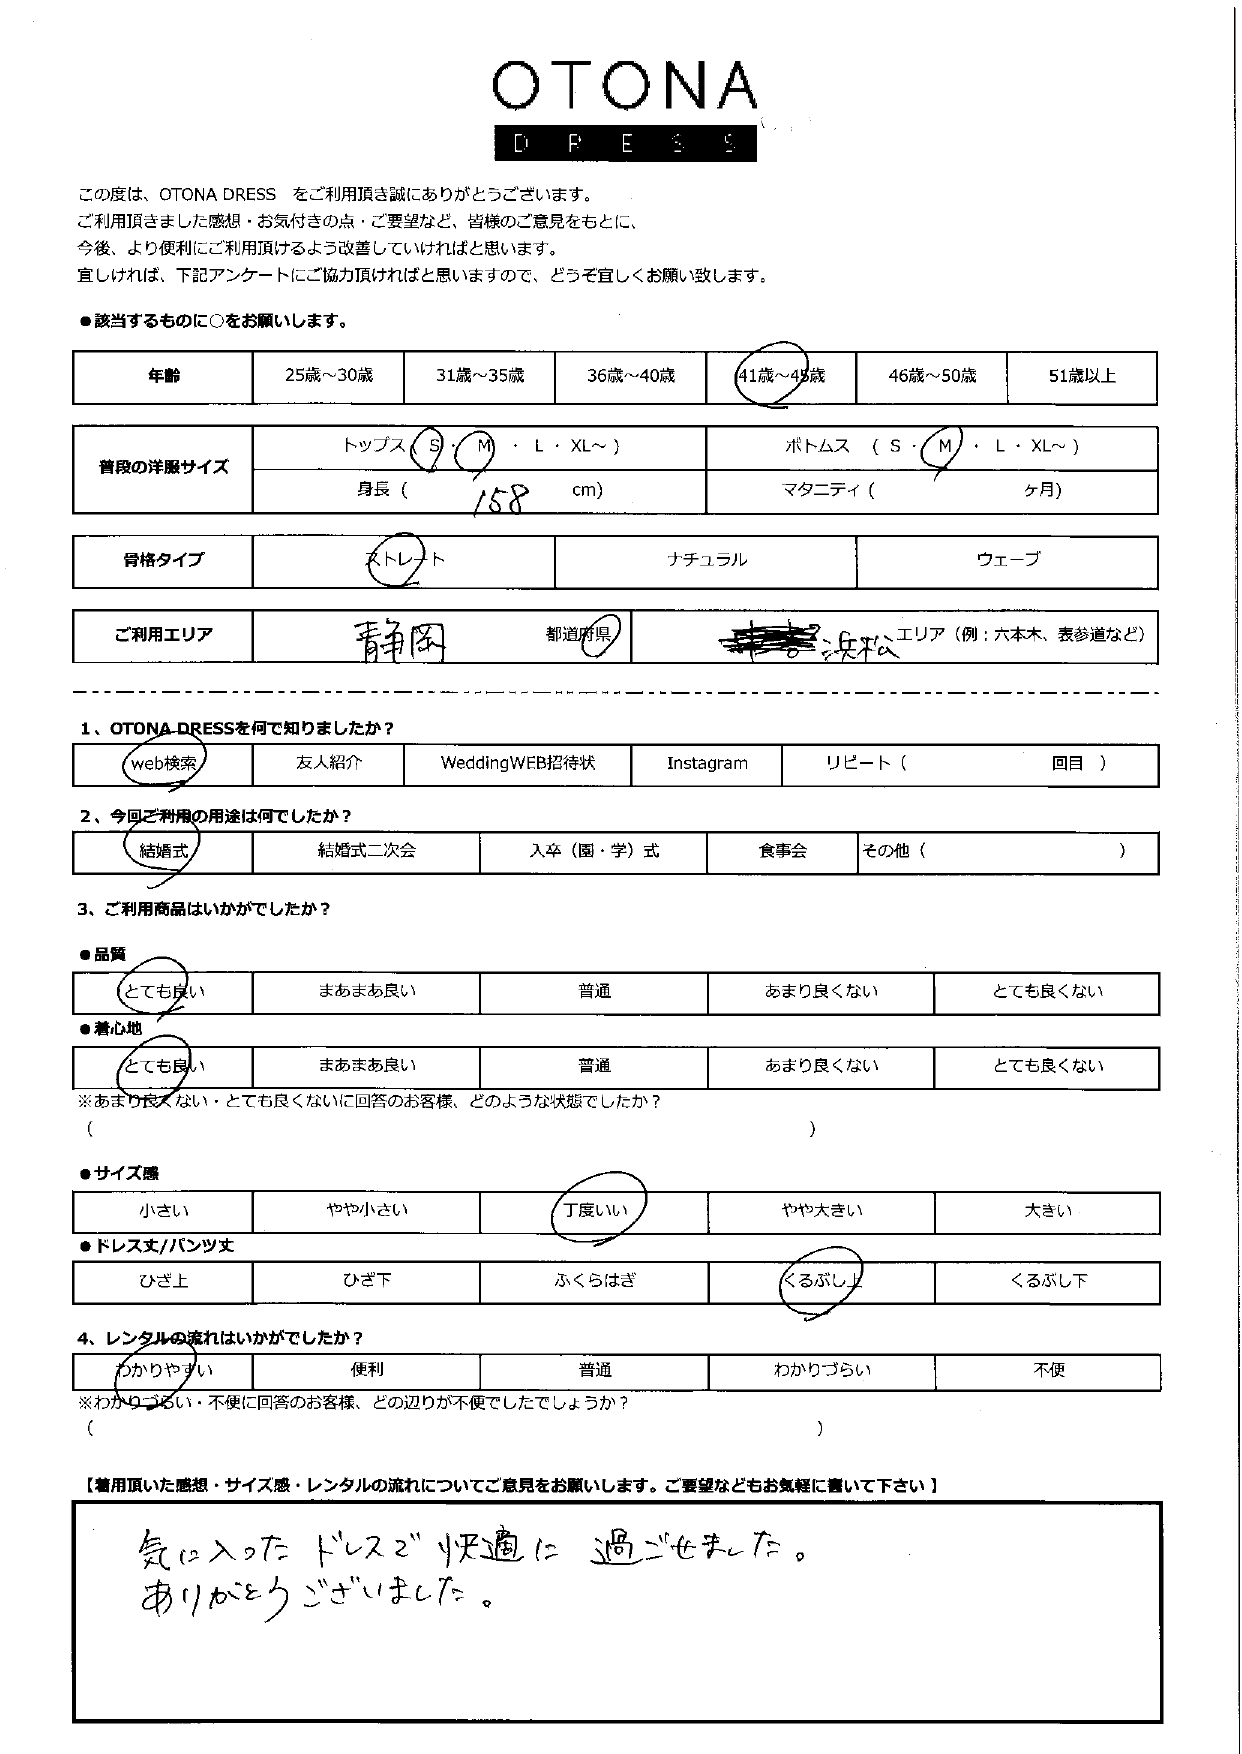 OTONA
DRESS
この度は、OTONA DRESS　をご利用頂き誠にありがとうございます。
ご利用頂きました感想・お気付きの点・ご要望など、皆様のご意見をもとに、
今後、より便利にご利用頂けるよう改善していければと思います。
宜しければ、下記アンケートにご協力頂ければと思いますので、どうぞ宜しくお願い致します。
●該当するものに○をお願いします。
年齢 25歳～30歳 31歳～35歳 36歳～40歳 41歳～45歳 46歳～50歳 51歳以上
普段の洋服サイズ トップス（ S ・ M ・ L ・ XL～ ） ボトムス （ S ・ M ・ L ・ XL～ ）
身長（ 158 cm） マタニティ（ ヶ月）
骨格タイプ ストレート ナチュラル ウェーブ
ご利用エリア 静岡 都道府県 浜松 エリア（例：六本木、表参道など）
1、OTONA DRESSを何で知りましたか？
web検索 友人紹介 WeddingWEB招待状 Instagram リピート（ 回目 ）
2、今回ご利用の用途は何でしたか？
結婚式 結婚式二次会 入卒（園・学）式 食事会 その他（ ）
3、ご利用商品はいかがでしたか？
●品質
とても良い まあまあ良い 普通 あまり良くない とても良くない
●着心地
とても良い まあまあ良い 普通 あまり良くない とても良くない
※あまり良くない・とても良くないに回答のお客様、どのような状態でしたか？
（ ）
●サイズ感
小さい やや小さい 丁度いい やや大きい 大きい
●ドレス丈/パンツ丈
ひざ上 ひざ下 ふくらはぎ くるぶし上 くるぶし下
4、レンタルの流れはいかがでしたか？
わかりやすい 便利 普通 わかりづらい 不便
※わかりづらい・不便に回答のお客様、どの辺りが不便でしたでしょうか？
（ ）
【着用頂いた感想・サイズ感・レンタルの流れについてご意見をお願いします。ご要望などもお気軽に書いて下さい】
気に入ったドレスで快適に過ごせました。
ありがとうございました。